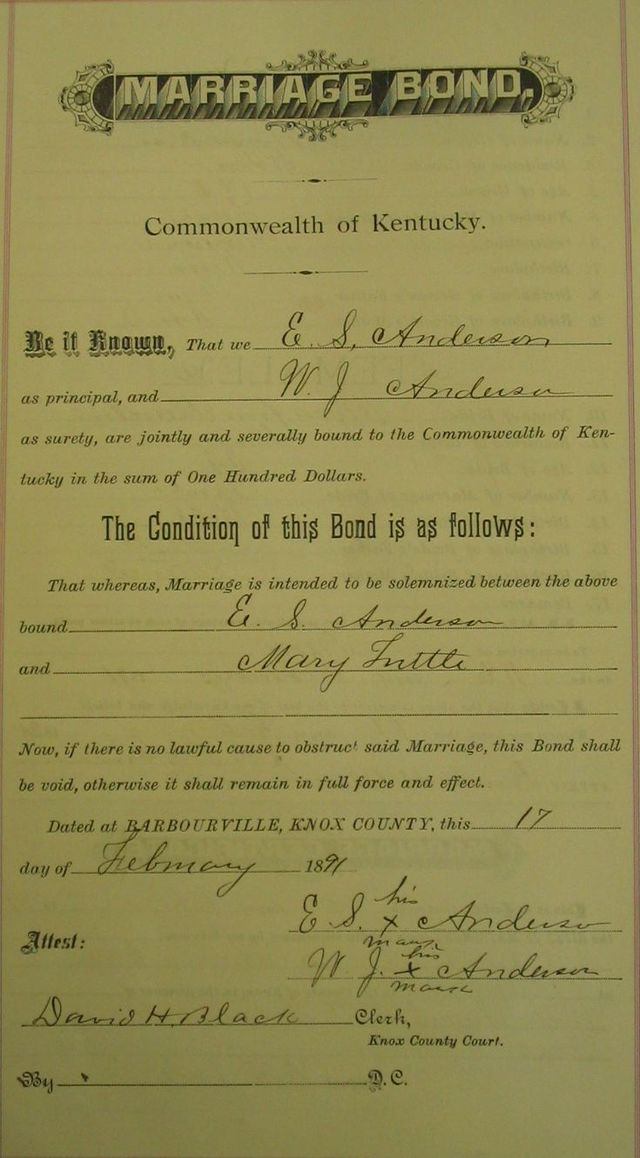 MARRIAGE BOND.
Commonwealth of Kentucky.
Be it Known, That we E. S. Anderson
as principal, and W. J Anderson
as surety, are jointly and severally bound to the Commonwealth of Ken-
tucky in the sum of One Hundred Dollars.
The Condition of this Bond is as follows:
That whereas, Marriage is intended to be solemnized between the above
bound E. S. Anderson
and Mary Tuttle
Now, if there is no lawful cause to obstruct said Marriage, this Bond shall
be void, otherwise it shall remain in full force and effect.
Dated at BARBOURVILLE, KNOX COUNTY, this 17
day of February 1891
his
E. S. x Anderson
mark
Attest:
his
W. J. x Anderson
mark
David H. Black Clerk,
Knox County Court.
By D. C.